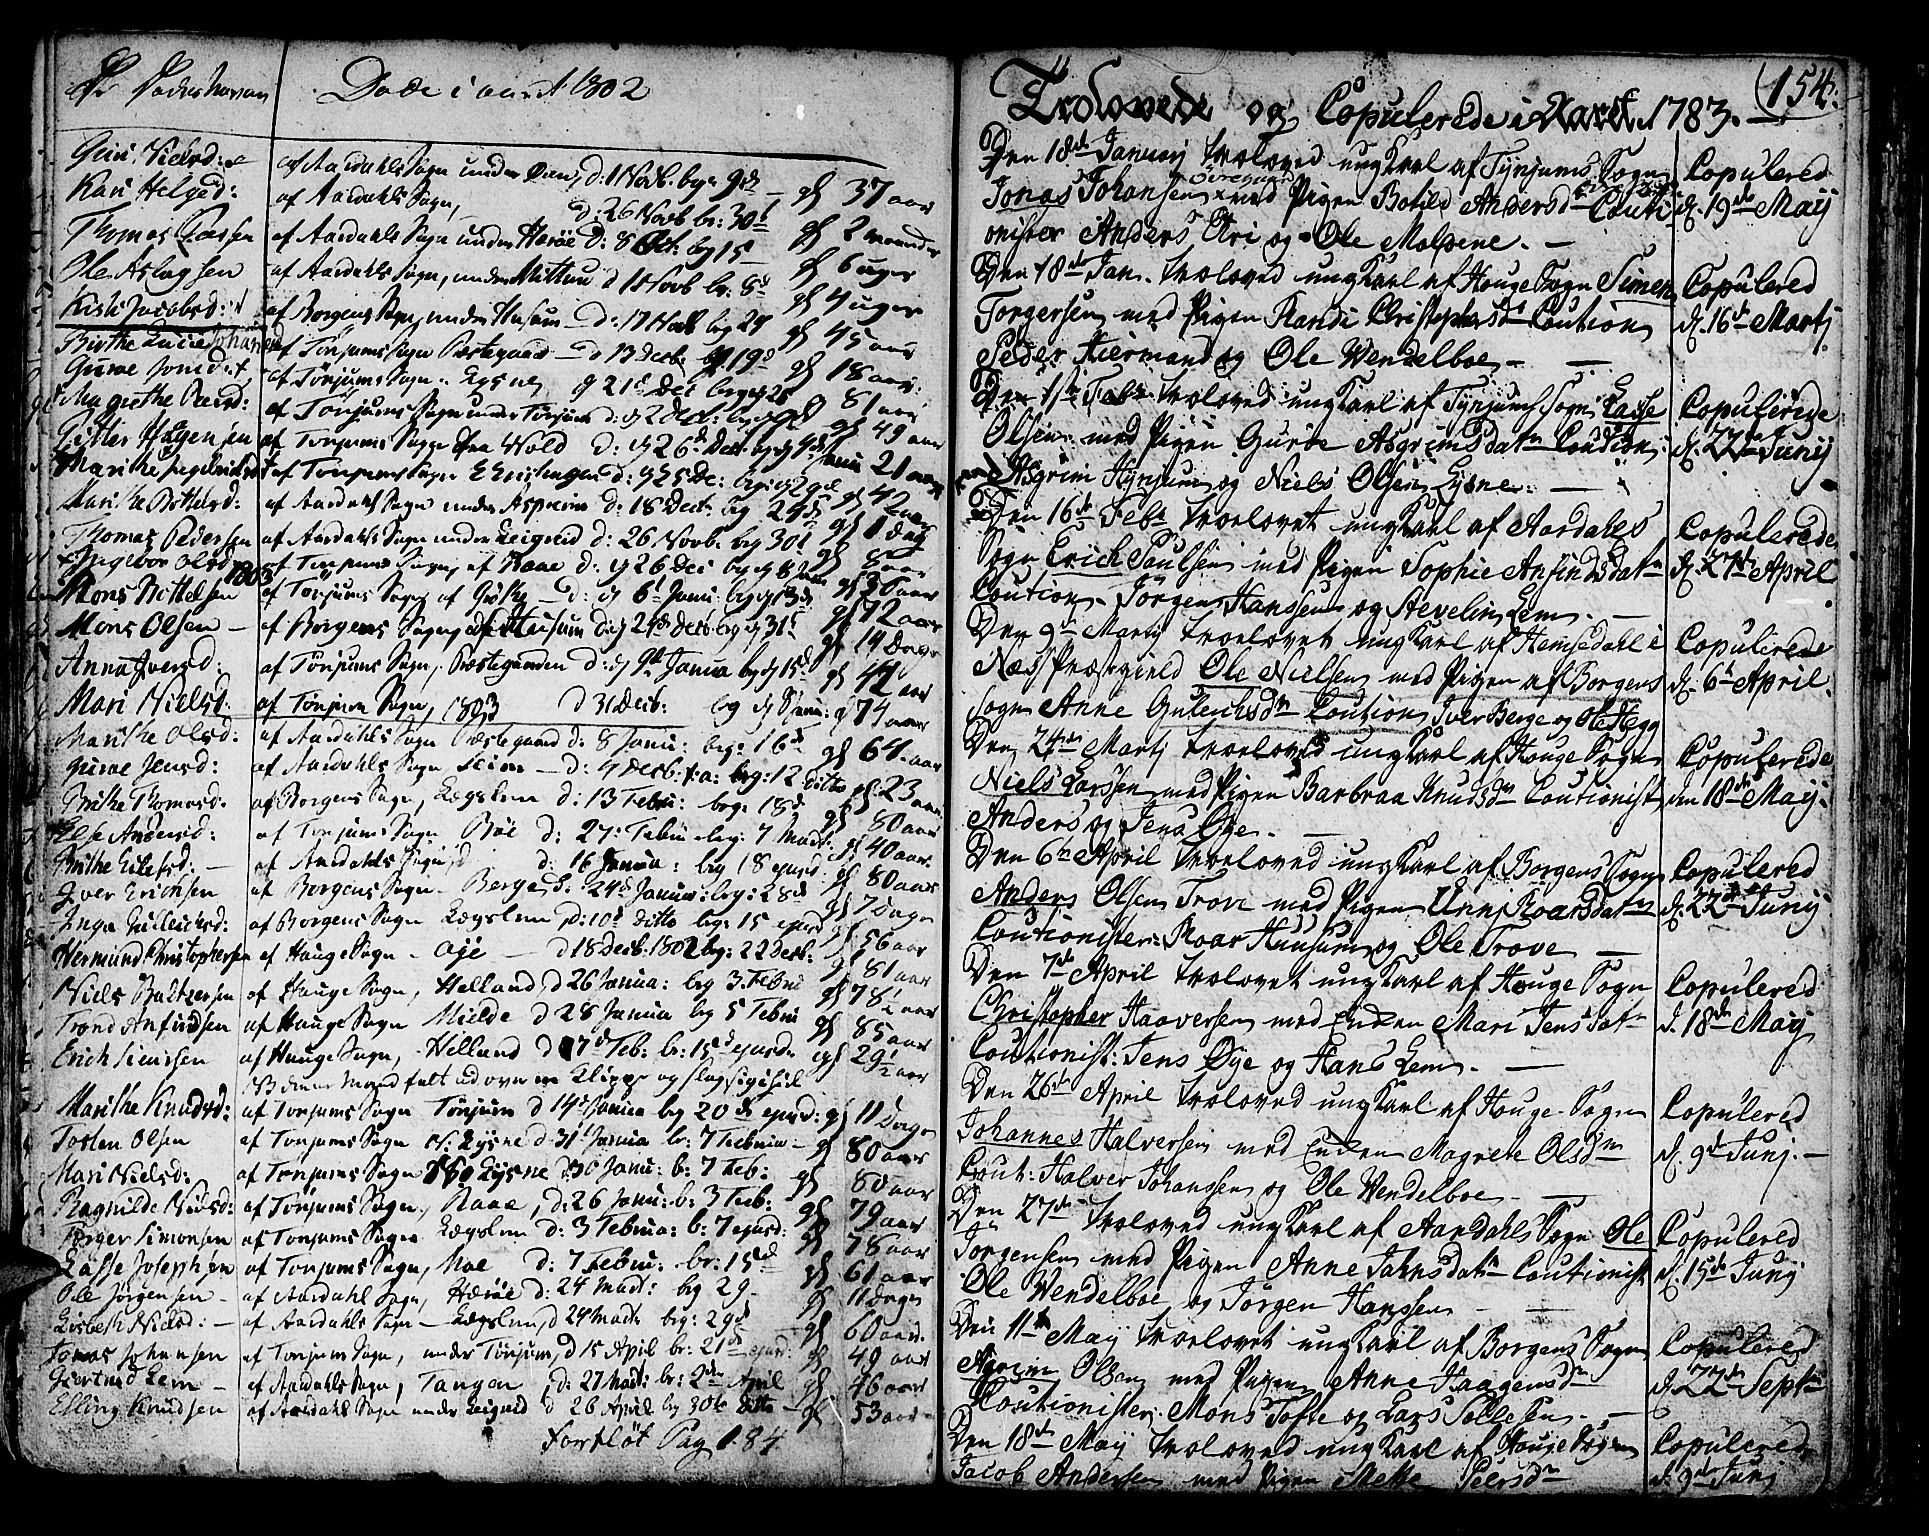 Døde i aaret 1802
Guri Nielsd: af Aardahls Sogn under d: 1 Novb. beg: 9de gl 37 aar
Kari Helged: af Aardahls Sogn, d: 26 Novb br: 30t gl 2 maaneder
Thomas af Aardahls Sogn under d: 8 Oct. beg 15 gl 6 uger
Ole Aslagsen af Aardahls Sogn, under d 1 Novb br: 8d gl 4 uger
Kisti Jacobsd: af Borgens Sogn, under Husum d: 17 Novb beg 24 gl 45 aar
Brithe Lucie Johansd af Tønjums Sogn Præstegaard d 13 Decb. beg. 19d gl 18 aar.
Gurue Jonsd: af Tønjums Sogn. Lysne, 21d Dec beg 26 gl 81 aar
Magrethe af Tønjums Sogn under Tønjum d: gl 49 aar
Pitter Hagensen af Tønjums Sogn fra Vold d: 26d Dec. gl 21 aar
Marithe af Tonjums Sogn gl 42 aar
Marithe Bottelsd: af Aardahls Sogn under d: 18 Decb. beg 24de gl 1 dag
Thomas Pedersen af Aardahls Sogn under d: 26 Novb. beg 30t gl 8 aar
Ingebor Olsd af Tonjums Sogn, af Raae d: 26 Dec gl 36 aar
1803
Mons Bottelsen af Tønjums Sogn, d: 6t Janu: gl 72 aar
Mons Olsen — af Borgens Sogn, Husum d: 24de Decb. beg 31t gl 14 Dage
Anna Iversd: af Tønjums Sogn, Præstegaarden d: 9de Janua beg 15d gl 42 aar
Mari Nielsd. af Tønjum Sogn, 1803 d 31 Decb: beg 8 Janu: gl 74 aar
Marithe Olsd: af Aardahls Sogn Præstegaard d: 8 Janu: beg: 16d gl 64 aar
Gurue Jensd: af Aardahls Sogn Seim — d: 9 Decb. f. a: beg: 12 ditto gl: 23 aar
Brithe Thomasd. af Borgens Sogn, Øygslem d: 13 Febru: beg: 18d gl 80 aar
Else Andersd: af Tonjums Sogn Bøe d: 27: Febru beg: 7 Mart: gl 40 aar.
Brithe Eilefsd: — af Aardahls Sogn d: 16 Janua: beg 18 ejusd: gl 80 aar
Iver Erichsen af Borgens Sogn. Berge d. 24d Janua: beg: 28d gl 7 Dage
Inga Gulleichsd: af Borgens Sogn Øygslem d: 10d ditto beg: 15 ejusd gl 56 aar
Hermund Christophersen af Hauge Sogn — Øje — d 18 Decb. 1802 beg: 22 Decb. gl 81 aar
Niels Baltzersen af Hauge Sogn, Helland, d 26 Janua: beg 3. Febru gl 78½ aar
Trond Anfindsen af Hauge Sogn Mielde d 28 Janua beg 5 Febru gl 85 aar
Erich Siursen af Hauge Sogn, Helland d 7d Feb: br: 15d ejusd: gl 29½ aar
NB denne Mand falt ud over en Klippe og slog sig ihiel
Marithe Knudsd: af Tonjums Sogn Tønjum d 14d Janua beg 20de ejusd: gl 11 Dage
Tosten Olsen af Tonjums Sogn N: Lysne d: 31t Janua br: 7 Februa — gl 80 aar
Mari Nielsd: af Tønjums Sogn Lysne d 30 Janu: b: 7 Feb: gl 80 aar
Ragnilde Nielsd: af Tønjums Sogn, Raae, d: 26 Janu: b: 3 Feb: gl 79 aar
Torger Simonsen af Tonjums Sogn Øygslem d: 3 Februa: b: 7 ejusd: gl 78 aar
Lasse Josephsen af Tonjums Sogn, Moe d: 7 Febru: br: 15d gl 61 aar
Ole Jørgensen — af Aardahls Sogn, Hæreie d: 24 Mart: beg 29. gl 11 dage
Lisbeth Nielsd: — af Aardahls Sogn — Øygslem, d 24 Mart: beg: 29d gl 60 aar.
Tomas Johansen af Tonjums Sogn, under Tønjum, d 15 April br: 21d ejusd: gl 49 aar
Giertrud Lem — af Aardahls Sogn, Tangen, d: 27 Mart: br: 2den April gl 46 aar
Elling Knudsen af Aardahls Sogn under d 26 April beg 30te ditto gl 53 aar
Forsløt Pag 184
154.
Trolovede og Copulerede i Aaret 1783.
Den 18de Januarij troloved ungkarl af Tynjums Sogn
Jonas Johansen med Pigen Botild Andersd Couti
onister Anders Eri og Ole Molpene. —
Copulered d. 19de Maij
Den 18de Jan. troloved ungkarl af Houge Sogn Simen
Torgersen med Pigen Randi Christophersd Coution
Peder Hiermand og Ole Wendelboe —
Copulered d. 16de Martj.
Den Febr. troloved ungkarl af Tynjums Sogn Lasse
Olsen med Pigen Gurue Asgrimsdatn Coution:
Asgrim Hynjum og Niels Olsen Lysne. —
Copulerede d. 22de Junij
Den 16de Febr troelovet ungkarl af Aardahls
Sogn Erich Paulsen med Pigen Sophie Anfindsdatn
Coution. Jørgen Hanssen og Stevelin Lem. —
Copulerede d. 27de April
Den 9de Martij troelovet ungkarl af Hemsedahl i
Næss Præstegield Ole Nielsen med Pigen af Borgens
Sogn Anne Guleichsdn Coution Iver Berge og Ole Hegg
Copulerede d. 6te April.
Den 24de Martj troeloved ungkarl af Houge Sogn
Niels Larssen med Pigen Barbraa Knudsdn Coutionist
Anders og Jens Øye. —
Copulerede den 18de Maij.
Den 6te April troeloved ungkarl af Borgens Sogn
Anders Olsen Trove med Pigen Unni Roarsdatn
Coutionister: Roar Husum og Ole Trove —
Copulered d. 22de Junij
Den 7de April troelovet ungkarl af Houge Sogn
Christopher Haaversen med Enken Mari Jensdatn
Coutionist: Jens Øye og Hans Lem. —
Copulered d. 18de Maij
Den 26de April troloved ungkarl af Houge Sogn
Johannes Halversen med Enken Magrete Olsdn
Cout: Halver Johanssen og Ole Wendelboe —
Copulered d. 9de Junj. —
Den 27de troloved ungkarl af Aardahls Sogn Ole
Jorgensen med Pigen Anne Jahnsdatn Coutionist
Ole Wendelboe og Jørgen Hanssen —
Copulered d. 15de Junij
Den 11te Maij troelovet ungkarl af Borgens Sogn
Asgrim Olsen med Pigen Anne Haagensdn
Coutionister: Mons Tofte og Lars Sollesen. —
Copulered d. 22de Septr
Den 18de Maij troloved ungkarl af Houge Sogn
Jacob Andersen med Pigen Mette Peersdn
Copulered d. 9de Junij